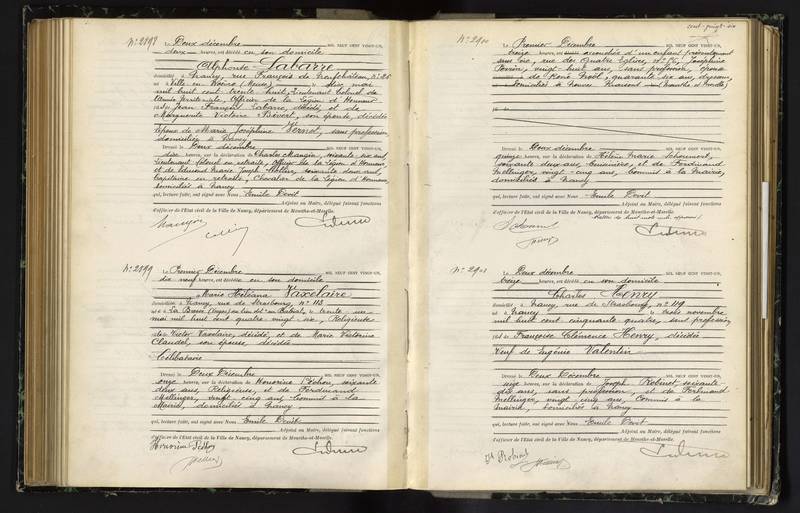 N° 2898
Le Deux décembre MIL NEUF CENT VINGT-UN,
deux heures, est décédé en son domicile
Alphonse Labarre
domicilié à Nancy, rue François de Neufchâteau, n° 25
né à Ville en (Meuse), le mai
mil huit cent trente huit, Lieutenant Colonel de
l'Armée territoriale, Officier de la Légion d'Honneur
fils de Jean François Labarre, décédé, et de
Marguerite Victoire Bévert, son épouse, décédée
Epoux de Marie Joséphine Vernet, sans profession
domiciliée à Nancy
Dressé le Deux décembre MIL NEUF CENT VINGT-UN,
dix heures, sur la déclaration de Charles Mangin, soixante six ans
Lieutenant Colonel en retraite, Officier de la Légion d'Honneur
et de Edmond Marie Joseph Collin, soixante deux ans,
Capitaine en retraite, Chevalier de la Légion d'Honneur,
domiciliés à Nancy
qui, lecture faite, ont signé avec Nous Emile Devit
Adjoint au Maire, délégué faisant fonctions
d'officier de l'Etat civil de la Ville de Nancy, département de Meurthe-et-Moselle.
N° 2899
Le Premier Décembre MIL NEUF CENT VINGT-UN,
dix neuf heures, est décédée en son domicile
Marie Héléana Vaxelaire
domiciliée à Nancy, rue de Strasbourg, n° 113
née à La Bresse (Vosges) au lieu dit le trente un
mai mil huit cent quatre vingt six, Religieuse
fille de Victor Vaxelaire, décédé, et de Marie Victorine
Claudel, son épouse, décédée
Célibataire
Dressé le Deux Décembre MIL NEUF CENT VINGT-UN,
onze heures, sur la déclaration de Honorine Pechou, soixante
deux ans, Religieuse, et de Ferdinand
Mellinger, vingt cinq ans, Commis à la
Mairie, domiciliés à Nancy
qui, lecture faite, ont signé avec Nous Emile Devit
Adjoint au Maire, délégué faisant fonctions
d'officier de l'Etat civil de la Ville de Nancy, département de Meurthe-et-Moselle.
cent-vingt-six
N° 2900
Le Premier Décembre MIL NEUF CENT VINGT-UN,
treize heures, est accouchée d'un enfant présentement
sans vie, rue des Quatre Eglises, n° 56, Joséphine
Perrin, vingt huit ans, sans profession, épouse
de René Noël, quarante six ans,
domiciliés à Neuves Maisons (Meurthe et Moselle)
Dressé le Deux décembre MIL NEUF CENT VINGT-UN,
quinze heures, sur la déclaration de Hélène Marie
soixante deux ans, et de Ferdinand
Mellinger, vingt-cinq ans, Commis à la Mairie,
domiciliés à Nancy
qui, lecture faite, ont signé avec Nous Emile Devit
Adjoint au Maire, délégué faisant fonctions
d'officier de l'Etat civil de la Ville de Nancy, département de Meurthe-et-Moselle.
N° 2901
Le Deux décembre MIL NEUF CENT VINGT-UN,
treize heures, est décédé en son domicile
Charles Henry
domicilié à Nancy, rue de Strasbourg, n° 119
né à Nancy le trois novembre
mil huit cent cinquante quatre, sans profession
fils de Françoise Clémence Henry, décédée
Veuf de Eugénie Valentin
Dressé le Deux Décembre MIL NEUF CENT VINGT-UN,
seize heures, sur la déclaration de Joseph Robinet, soixante
dix ans, sans profession, et de Ferdinand
Mellinger, vingt cinq ans, Commis à la
Mairie, domiciliés à Nancy
qui, lecture faite, ont signé avec Nous Emile Devit
Adjoint au Maire, délégué faisant fonctions
d'officier de l'Etat civil de la Ville de Nancy, département de Meurthe-et-Moselle.